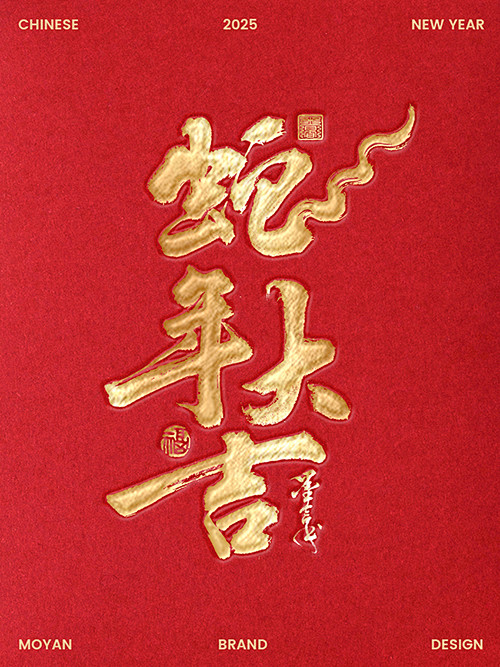 CHINESE 2025 NEW YEAR
蛇
年大
吉
福
MOYAN BRAND DESIGN